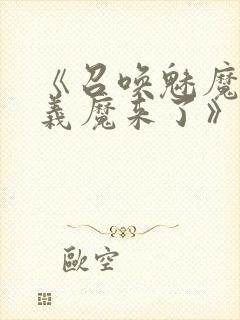 《召唤魅魔
義魔来了》
歐空